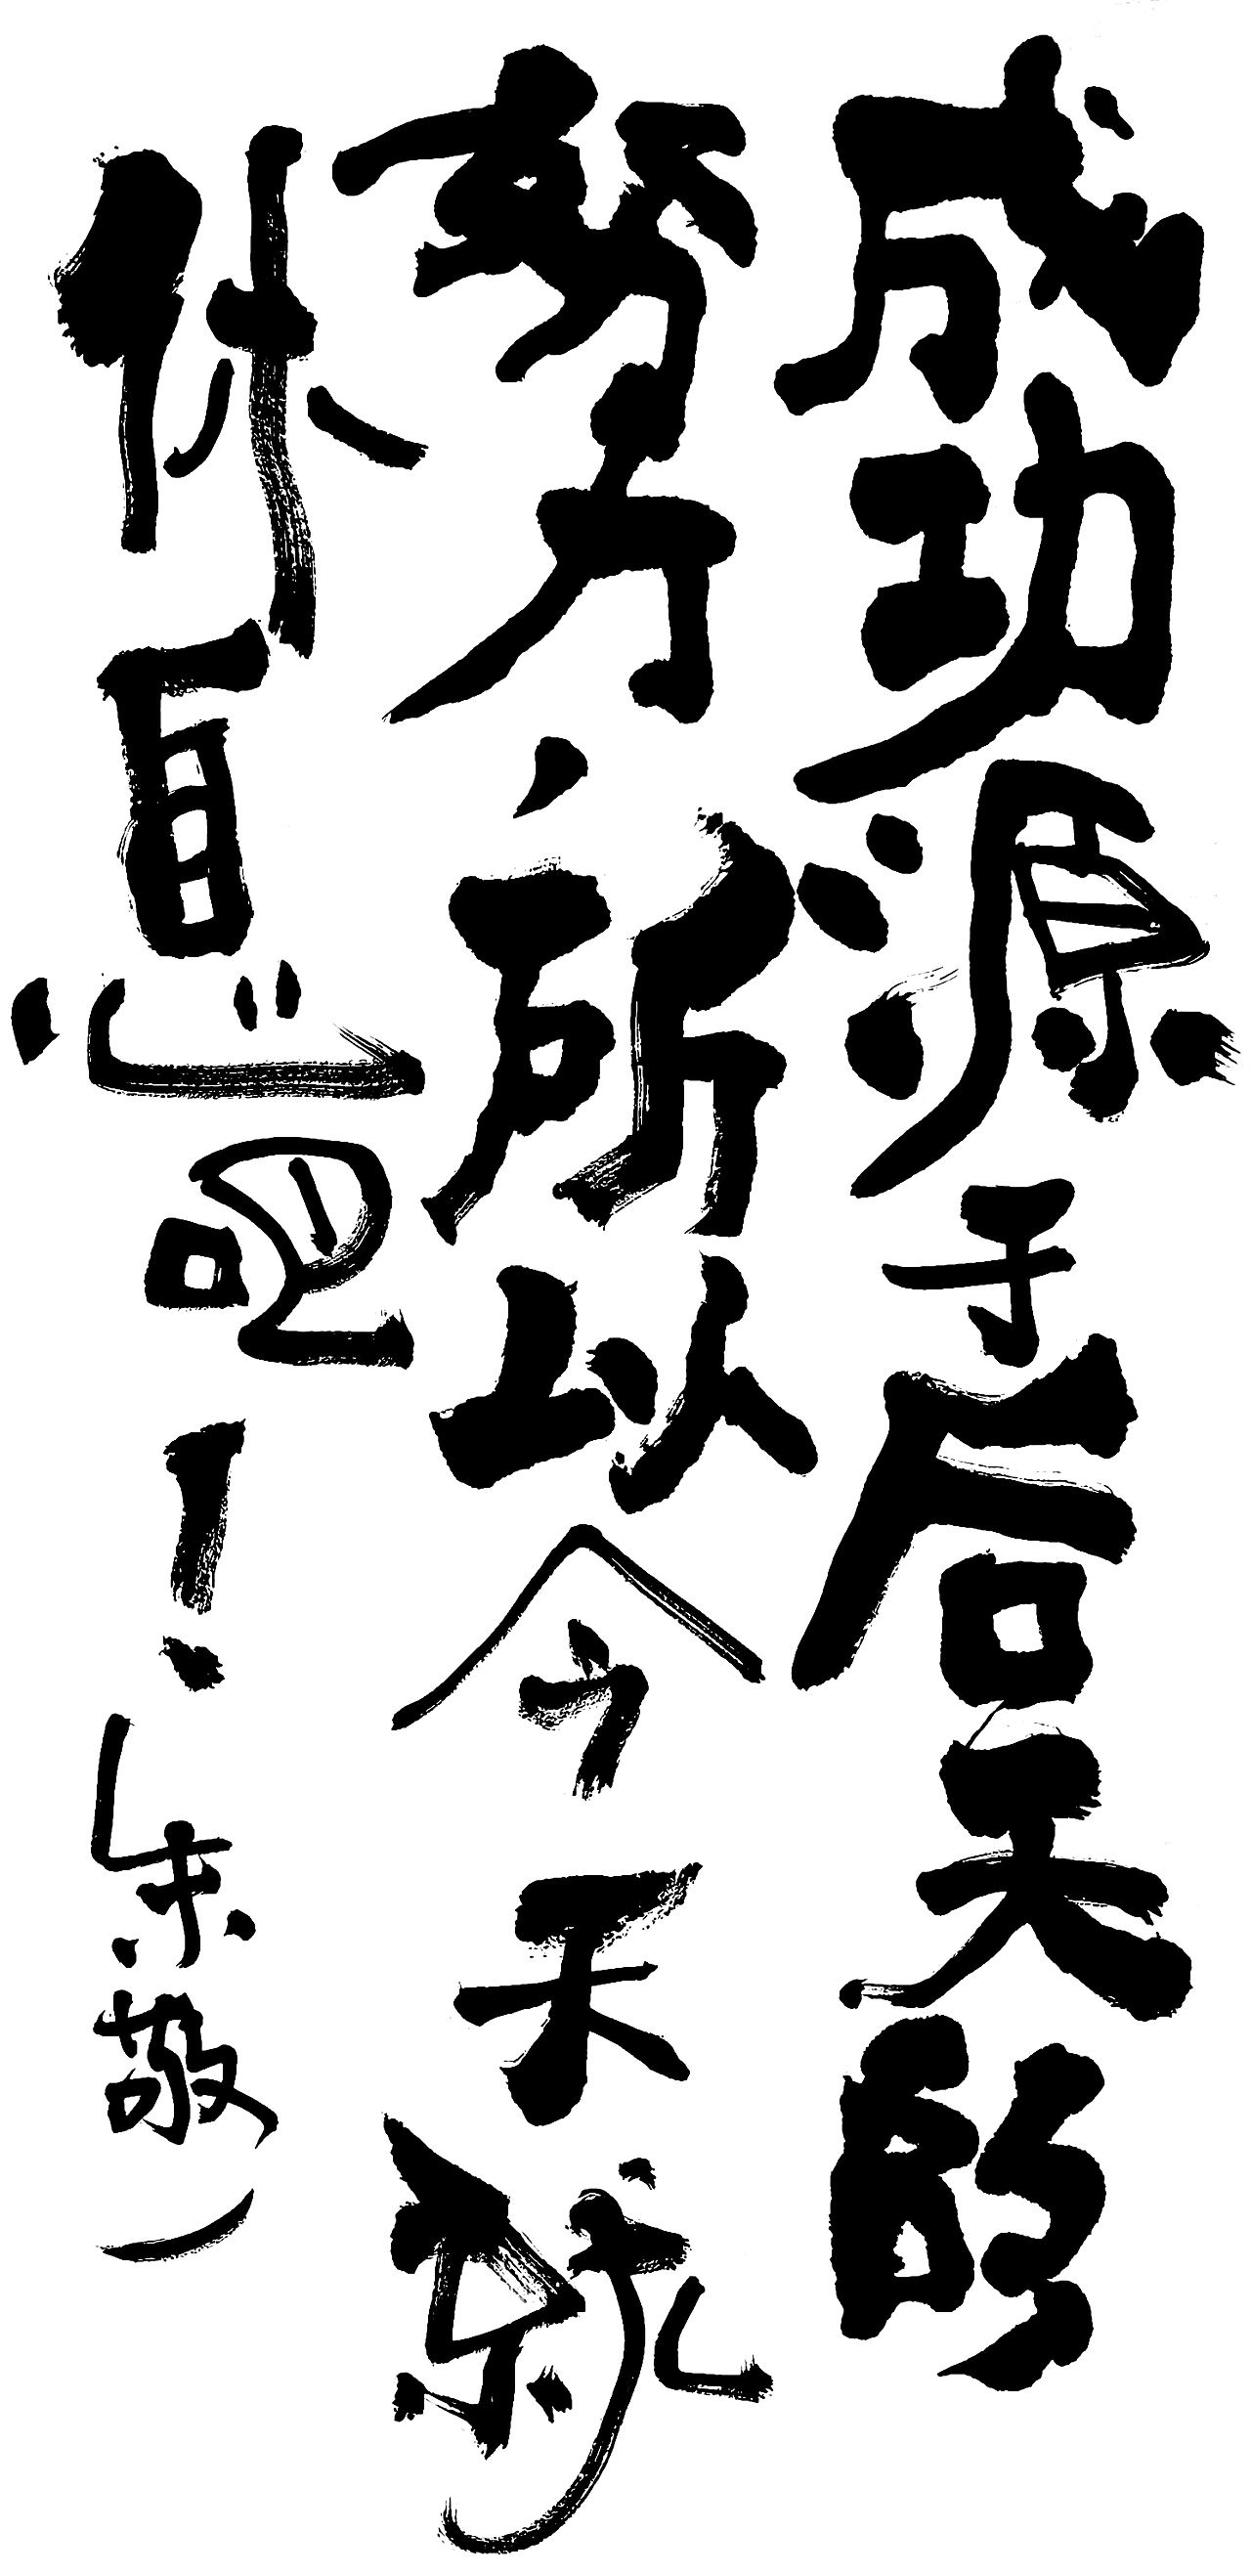 成功源于后天的
努力，所以今天就
休息吧！朱敬一